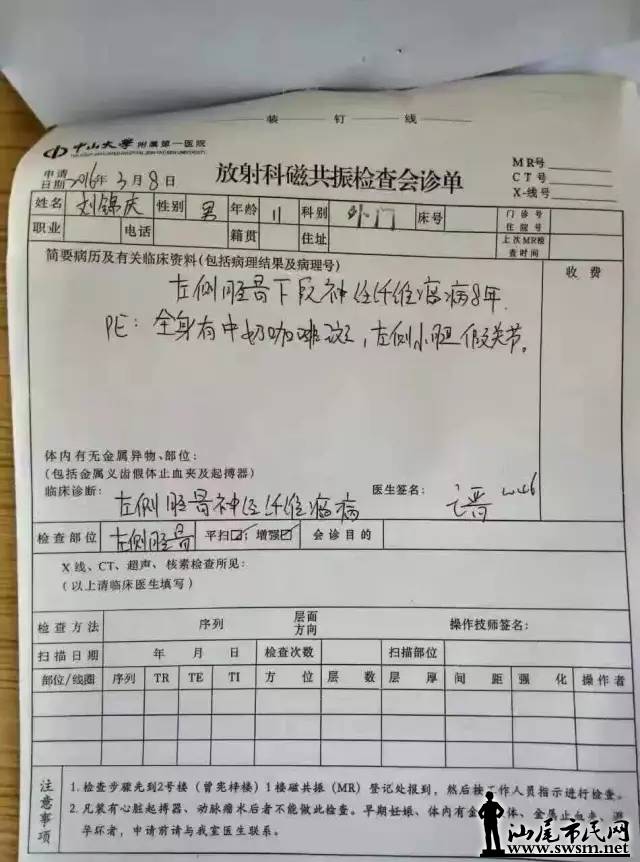 装 订 线
中山大学 附属第一医院
MR号
申请日期 2016年3月8日
放射科磁共振检查会诊单
CT号
X-线号
姓名 刘锦庆 性别 男 年龄 11 科别 外门 床号 门诊号 住院号
职业 电话 籍贯 住址 上次MR检查时间
简要病历及有关临床资料(包括病理结果及病理号)
收费
左侧胫骨下段神经纤维瘤病8年.
PE: 全身有牛奶咖啡斑, 左侧小腿假关节。
体内有无金属异物、部位:
(包括金属义齿假体止血夹及起搏器)
临床诊断: 左侧胫骨神经纤维瘤病 医生签名:
检查部位 左侧胫骨 平扫☑; 增强☑ 会诊目的
X线、CT、超声、核素检查所见:
(以上请临床医生填写)
检查方法 序列 层面方向 操作技师签名:
扫描日期 年 月 日 检查次数 扫描部位
部位/线圈 序列 TR TE TI 方位 层数 层厚 间距 强化 操作者
注意事项
1.检查步骤先到2号楼(曾宪梓楼)1楼磁共振(MR)登记处报到,然后按工作人员指示进行检查。
2.凡装有心脏起搏器、动脉瘤术后者不能做此检查。早期妊娠、体内有金 体、金属止血夹、避
孕环者,申请前请与我室医生联系。
汕尾市民网
www.swsm.net